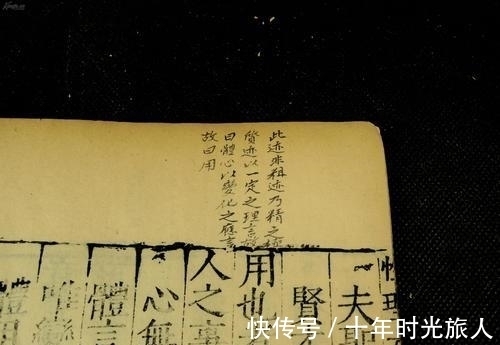 此迹非粗迹乃精之
迹以一定之理言故
曰體心以變化之應言
故曰用
夫
賢
用也
人之事
心無
體言
體用
快传号 / 十年时光旅人